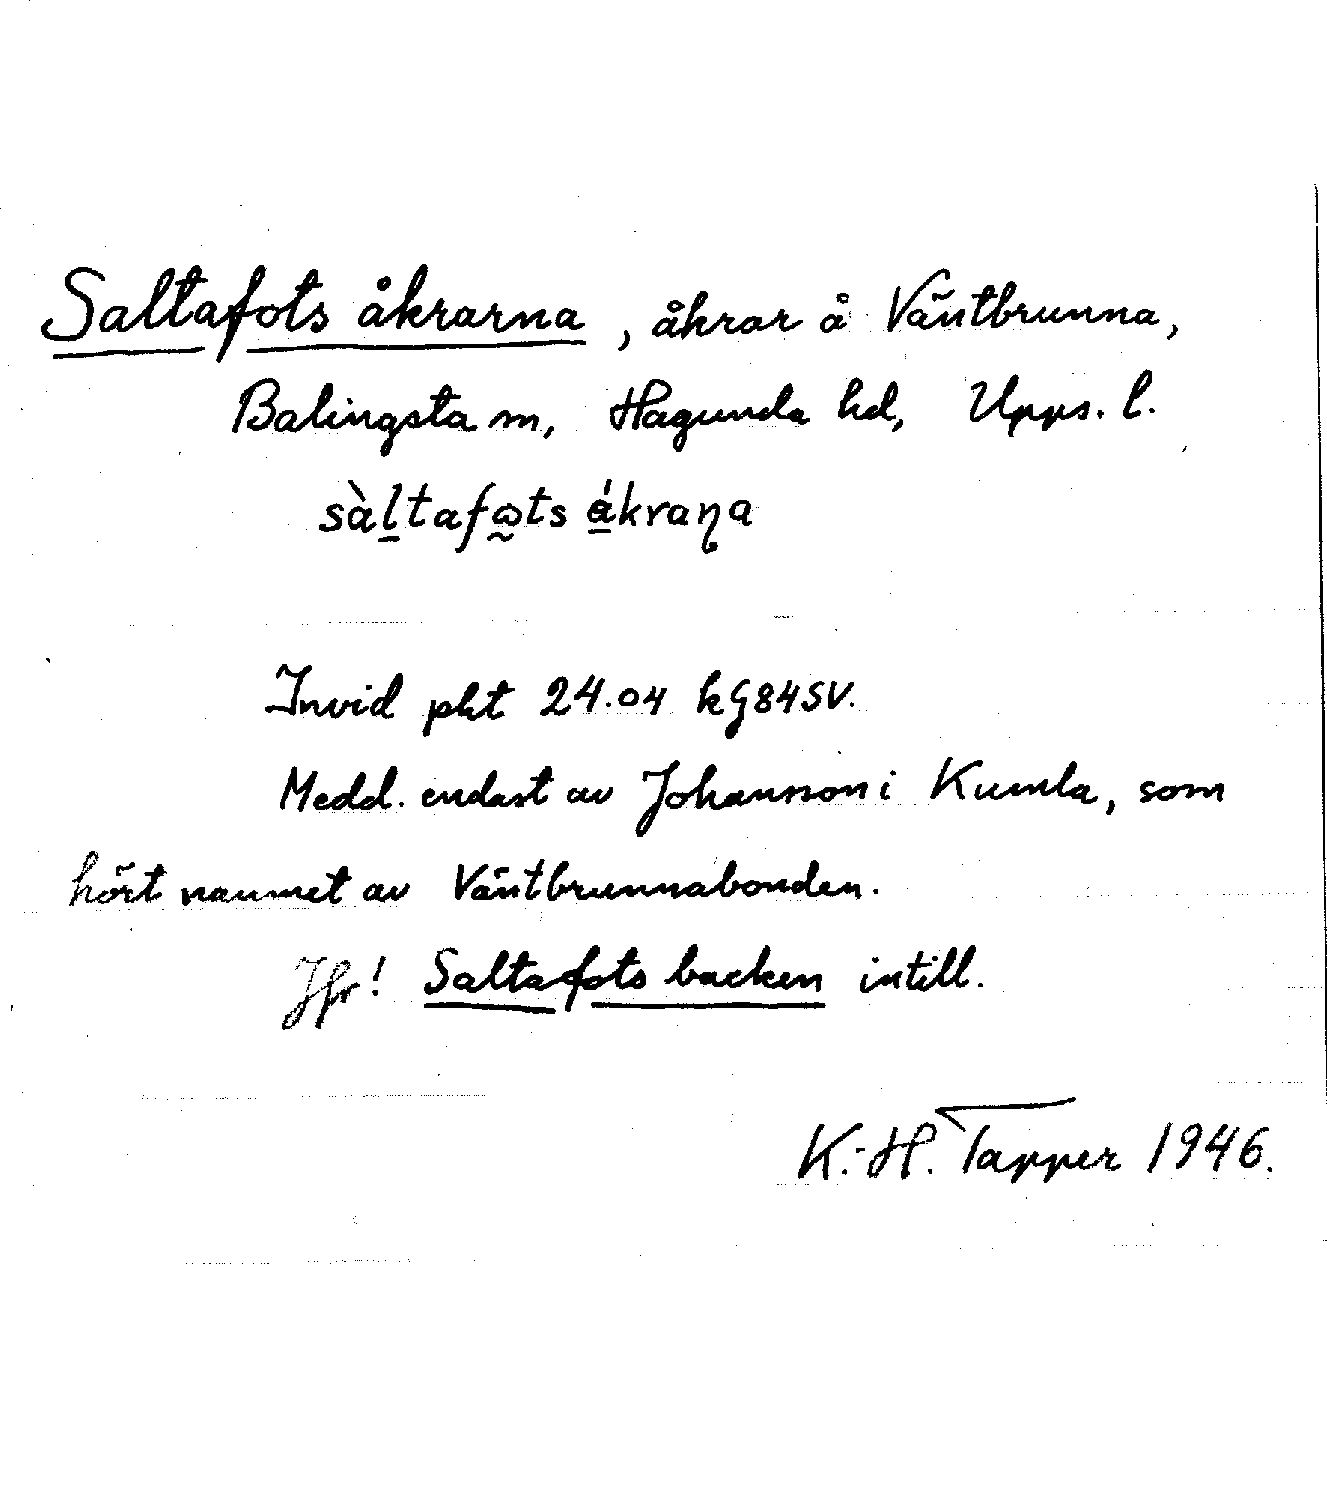 Saltafots åkrarna, åkrar å Väntbrunna,
Balingsta sn, Hagunda hd, Upps. l.
sàl̲tafω̰ts á̲kraɳa
Invid pkt 24.04 kG84SV.
Medd. endast av Johansson i Kumla, som
hört namnet av Väntbrunnabonden.
Jfr! Saltafots backen intill.
K.-H. Tapper 1946.